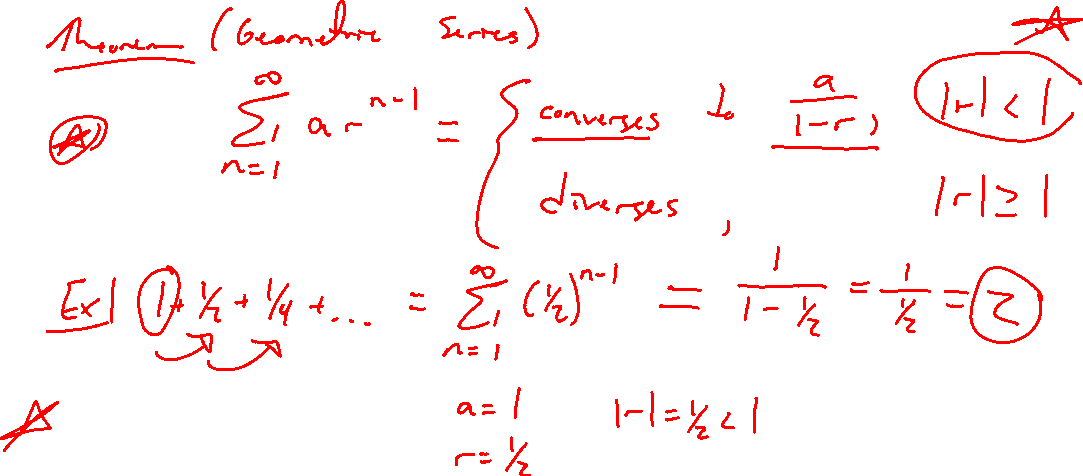 Theorem (Geometric Series)
∑_{n=1}^{∞} a r^{n-1} = { converges to a/(1-r), |r| < 1
diverges, |r| ≥ 1
Ex| 1 + 1/2 + 1/4 + ... = ∑_{n=1}^{∞} (1/2)^{n-1} = 1/(1 - 1/2) = 1/(1/2) = 2
a = 1 |r| = 1/2 < 1
r = 1/2